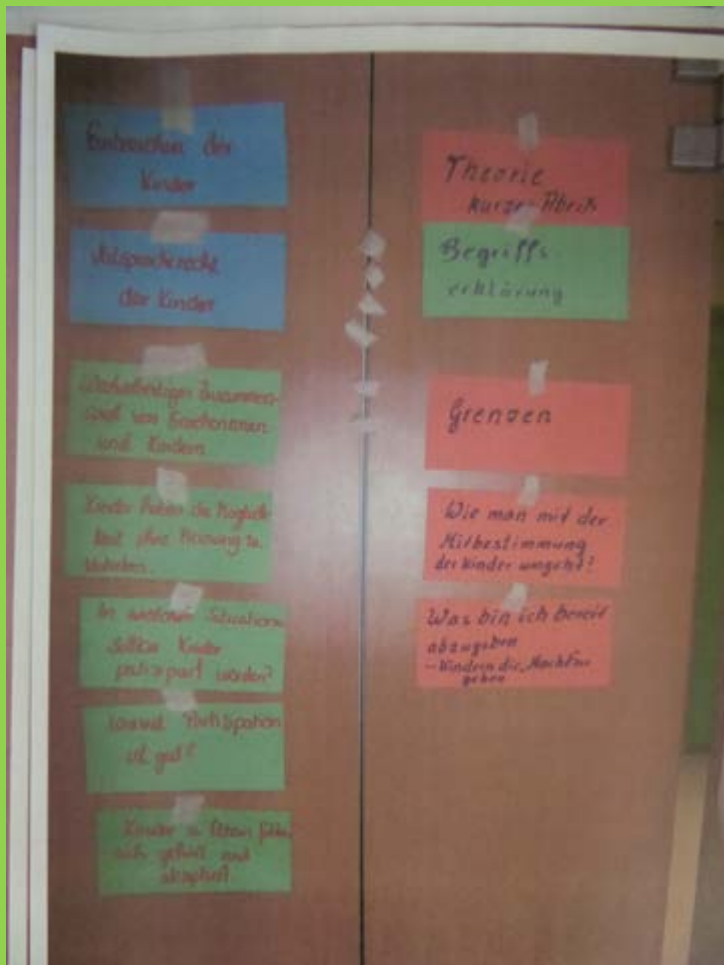 Einbeziehen der
Kinder
Mitspracherecht
der Kinder
Wechselseitiges Zusammen-
spiel von Erwachsenen
und Kindern
Kinder haben die Möglich-
keit ihre Meinung zu
In welchen Situationen
sollten Kinder
partizipiert werden?
Wieviel Partizipation
ist gut?
Kinder u. Eltern fühlen
sich gehört und
akzeptiert
Theorie
kurzer Abriß
Begriffs-
erklärung
Grenzen
Wie man mit der
Mitbestimmung
der Kinder umgeht?
Was bin ich bereit
abzugeben
- Kindern die Macht zu
geben